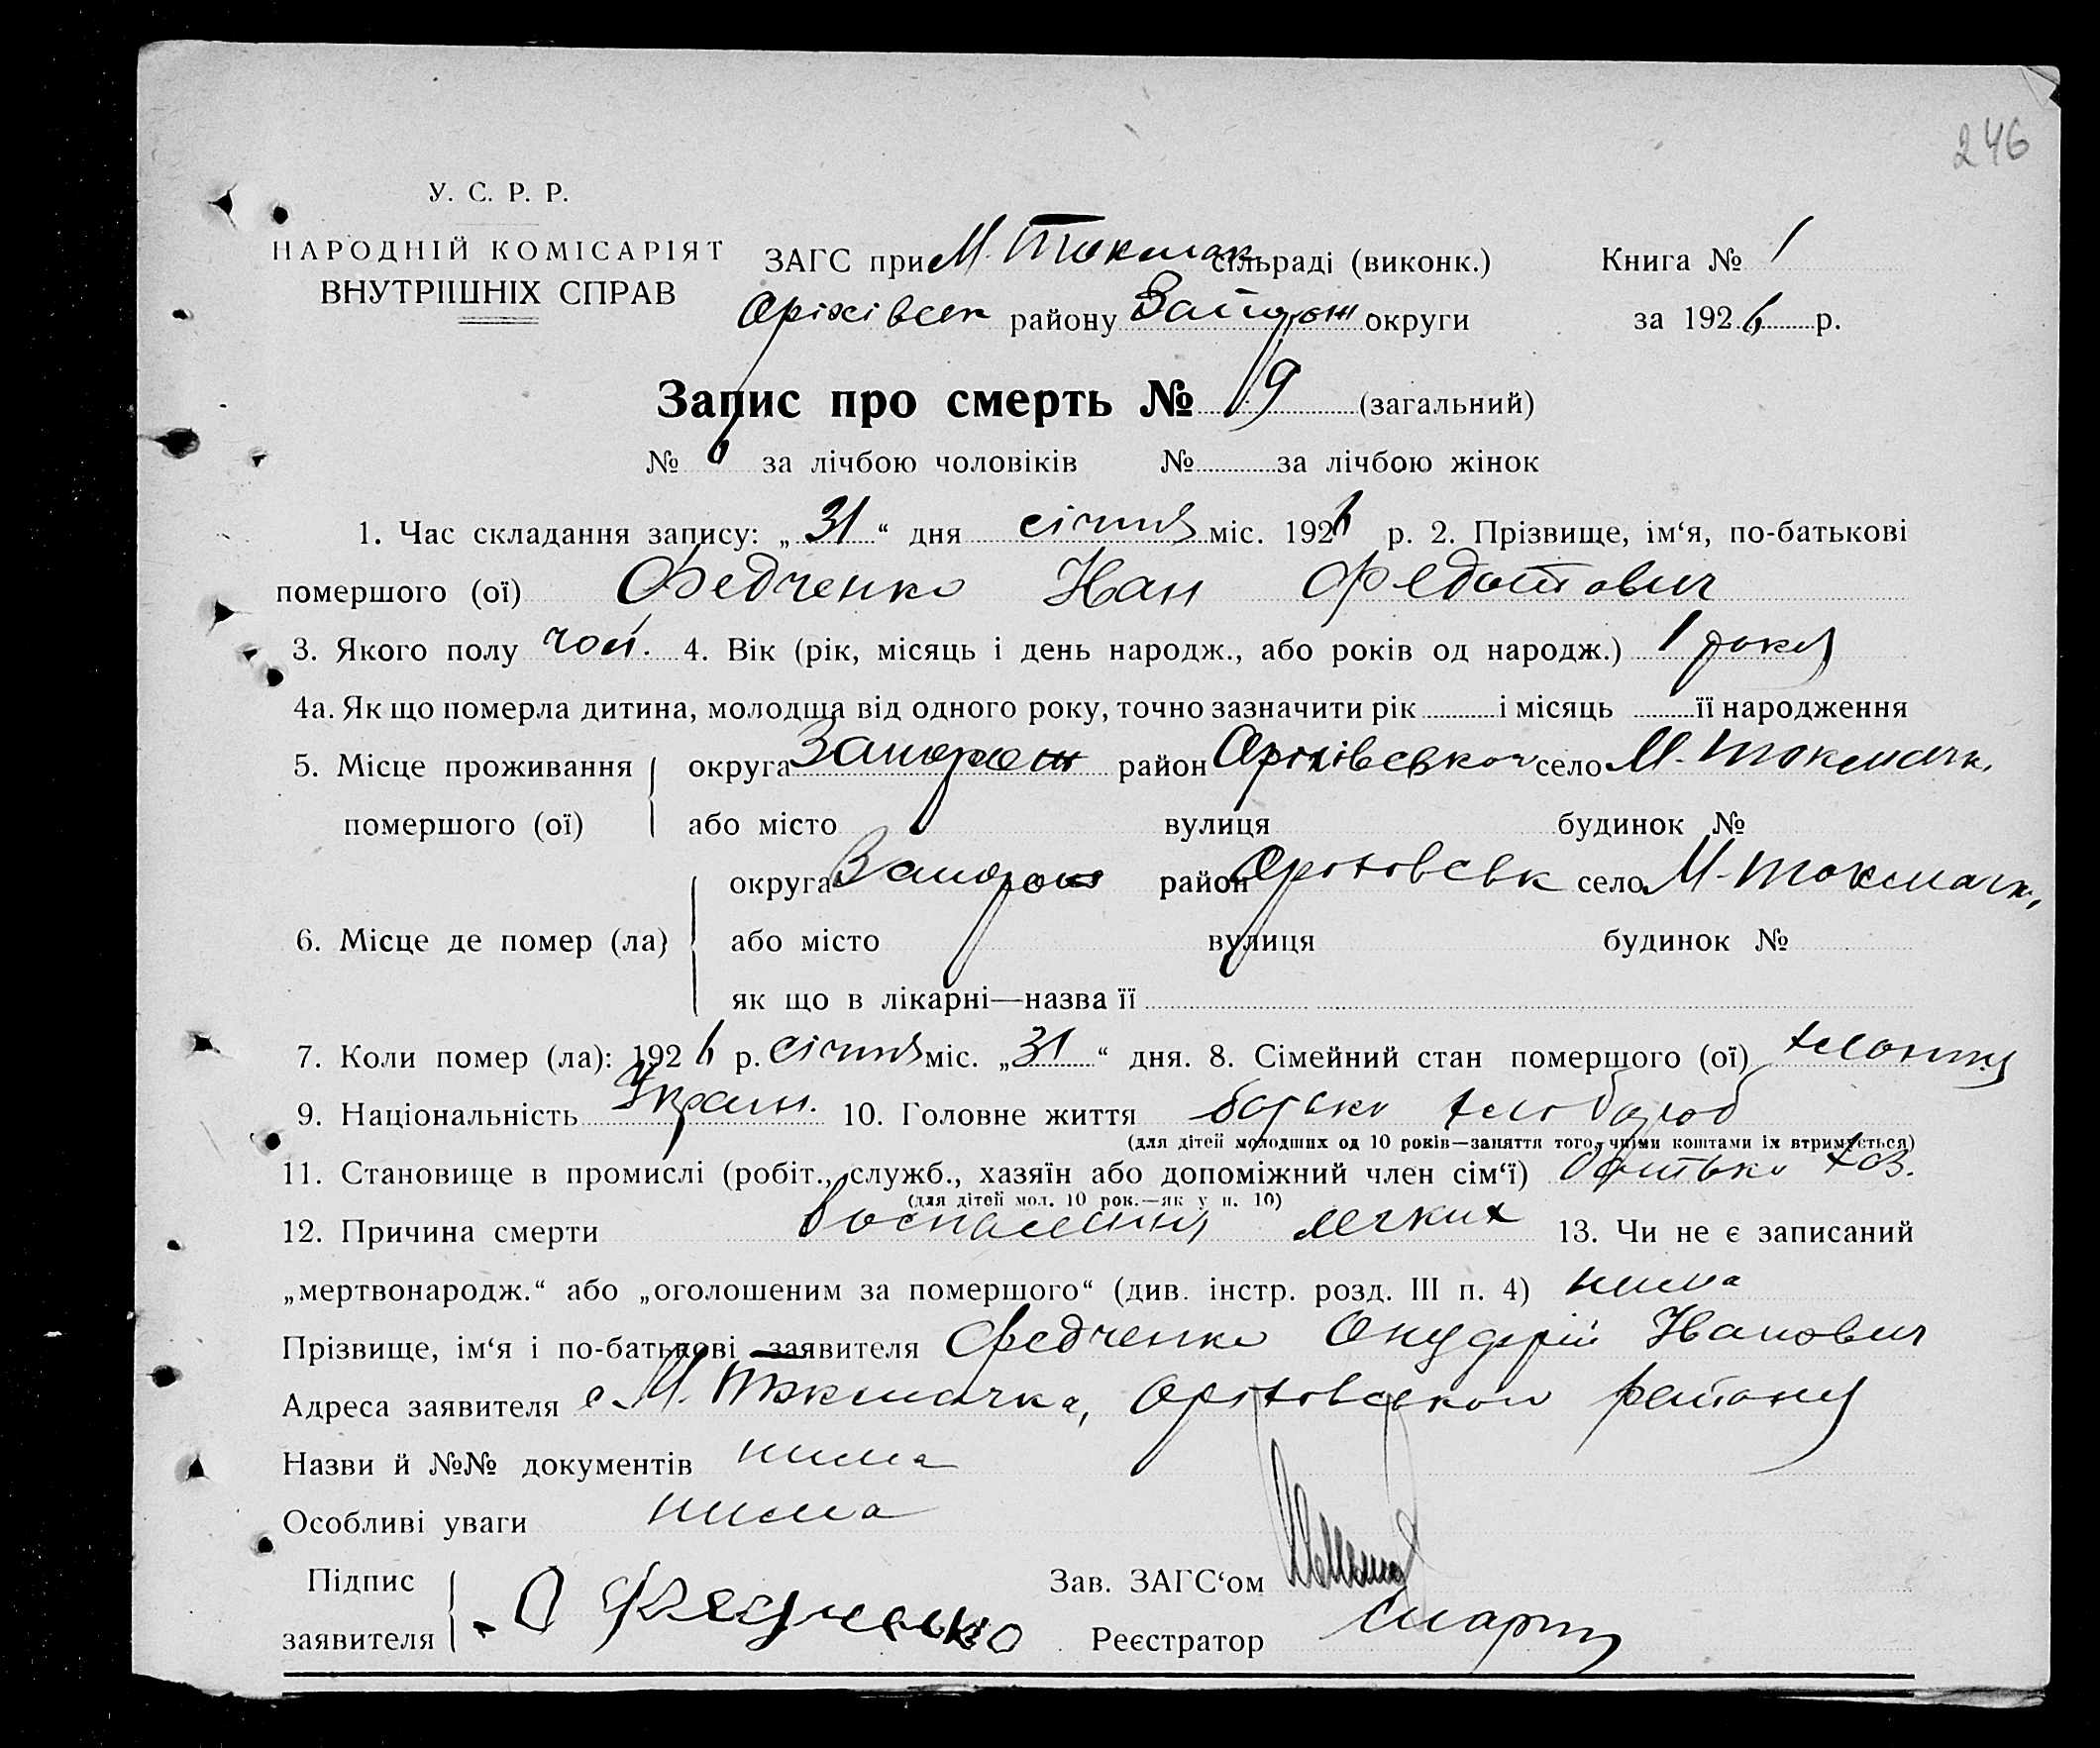 246
У. С. Р. Р.
НАРОДНІЙ КОМІСАРІЯТ
ВНУТРІШНІХ СПРАВ
ЗАГС при М. Токмач сільраді (виконк.) Книга № 1
Оріхівськ району Запорож округи за 1926 р.
Запис про смерть № 19 (загальний)
№ за лічбою чоловіків № за лічбою жінок
1. Час складання запису: „31“ дня січня міс. 1926 р. 2. Прізвище, ім‘я, по-батькові
помершого (ої) Федченко Иван Федотович
3. Якого полу чол. 4. Вік (рік, місяць і день народж., або років од народж.) 1 року
4а. Як що померла дитина, молодща від одного року, точно зазначити рік і місяць її народження
5. Місце проживання округа Запорож район Оріхівськой село М-Токмачк.
помершого (ої) або місто вулиця будинок №
округа Запорож район село М-Токмачк,
6. Місце де помер (ла) або місто вулиця будинок №
як що в лікарні—назва її
7. Коли помер (ла): 1926 р. січня міс. „31“ дня. 8. Сімейний стан помершого (ої)
9. Національність Україн. 10. Головне життя батько хлібороб
(для дітей молодших од 10 років—заняття того, чиїми коштами їх втримується)
11. Становище в промислі (робіт., служб., хазяїн або допоміжний член сім‘ї) батько хоз.
(для дітей мол. 10 рок.—як у п. 10)
12. Причина смерти воспаления легких 13. Чи не є записаний
„мертвонародж.“ або „оголошеним за помершого“ (див. інстр. розд. III п. 4) нима
Прізвище, ім‘я і по-батькові заявителя Федченко Иванович
Адреса заявителя с М. Токмачка, району
Назви й №№ документів нима
Особливі уваги нима
Підпис
заявителя О Федченко
Зав. ЗАГС‘ом
Реєстратор